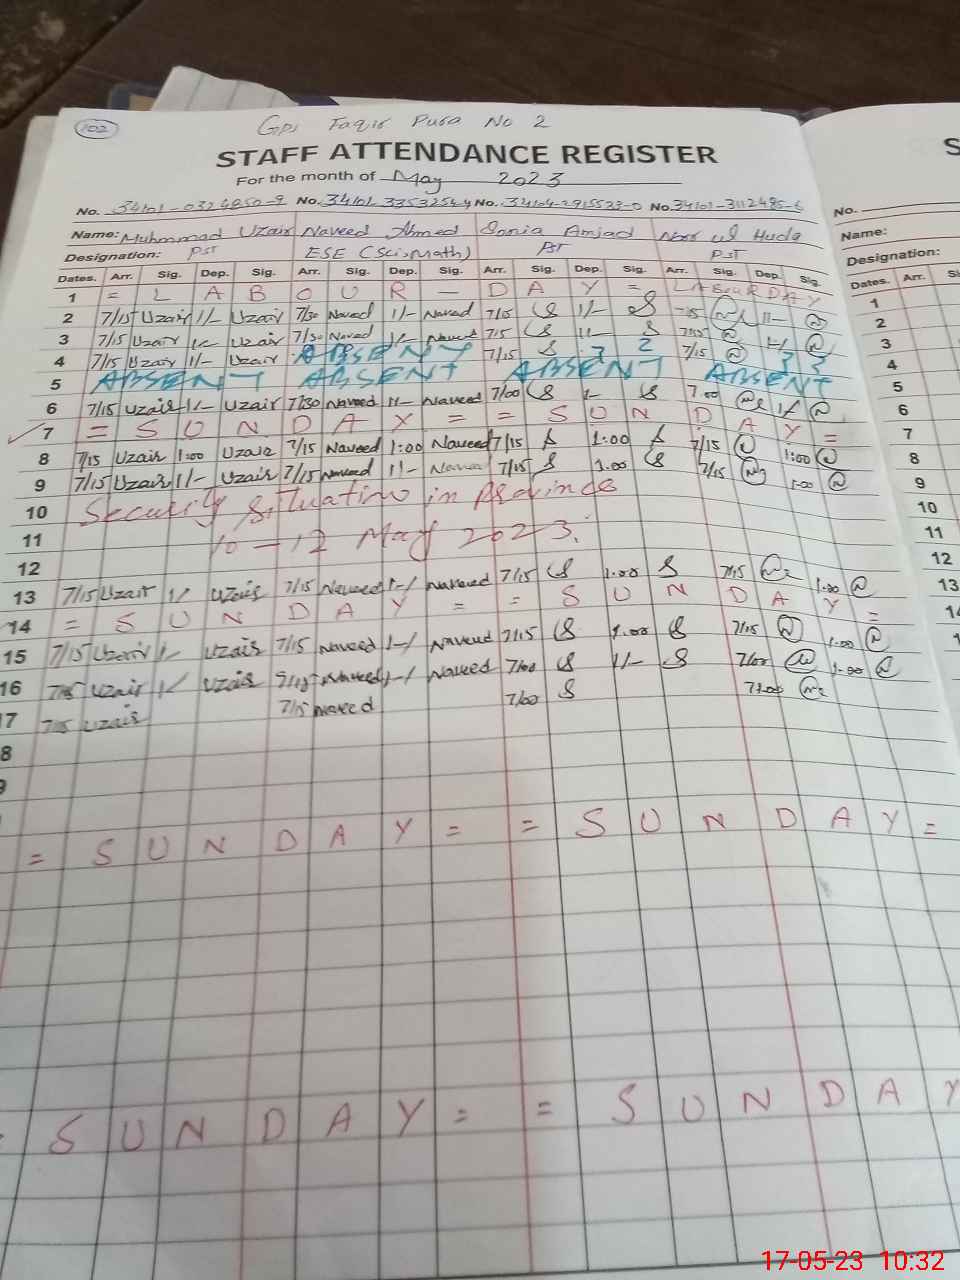 102
GPS Faqir Pura No 2
STAFF ATTENDANCE REGISTER
For the month of May 2023
No. No. No. No.
Name: Muhmmad Uzair Naveed Ahmed Sonia Amjad Noor ul Huda
Designation: PST ESE (Sci-Math) PST PST
Dates. Arr. Sig. Dep. Sig. Arr. Sig. Dep. Sig. Arr. Sig. Dep. Sig. Arr. Sig. Dep. Sig.
1 = L A B O U R — D A Y = LABOUR DAY
2 7/15 Uzair 1/- Uzair 7/30 Naveed 1/- Naveed 7/15 1/-
3 7/15 Uzair 1/- Uzair 7/30 Naveed 1/- Naveed 7/15 7/15 1/-
4 7/15 Uzair 1/- Uzair ABSENT 7/15 2 2 7/15 3 3
5 ABSENT ABSENT ABSENT ABSENT
6 7/15 Uzair 1/- Uzair 7/30 Naveed 1/- Naveed 7/00 1/- 7.00 1/-
7 = S U N D A Y = = S U N D A Y =
8 7/15 Uzair 1:00 Uzair 7/15 Naveed 1:00 Naveed 7/15 1:00 7/15 1:00
9 7/15 Uzair 1/- Uzair 7/15 Naveed 1/- Naveed 7/15 1.00 7/15 1.00
10 Security Situation in Province
11 10 — 12 May 2023.
12
13 7/15 Uzair 1/ Uzair 7/15 Naveed 1-/ Naveed 7/15 1.00 7/15 1.00
14 = S U N D A Y = = S U N D A Y =
15 7/15 Uzair 1- Uzair 7/15 Naveed 1-/ Naveed 7/15 1.00 7/15 1.00
16 7/15 Uzair 1/ Uzair 7/15 Naveed 1-/ Naveed 7/00 1/- 7/00 1.00
7 7/15 Uzair 7/15 Naveed 7/00 7.00
8
9
= S U N D A Y = = S U N D A Y =
S U N D A Y = = S U N D A Y
S
No.
Name:
Designation:
Dates. Arr. Si
1
2
3
4
5
6
7
8
9
10
11
12
13
14
1
17-05-23 10:32